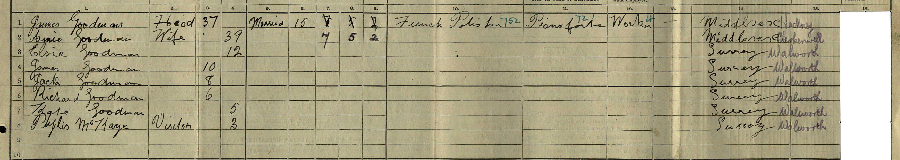 1 James Goodman Head 37 Married 15 7 5 2 French Polisher 752 Pianoforte Worker Middlesex Hackney
2 Goodman Wife 39 7 5 2 Middlesex Clerkenwell
3 Elsie Goodman 12 Surrey Walworth
4 James Goodman 10 Surrey Walworth
5 Jack Goodman 8 Surrey Walworth
6 Richard Goodman 6 Surrey Walworth
7 Kate Goodman 5 Surrey Walworth
8 McKaye Visitor 2 Surrey Walworth
9
10